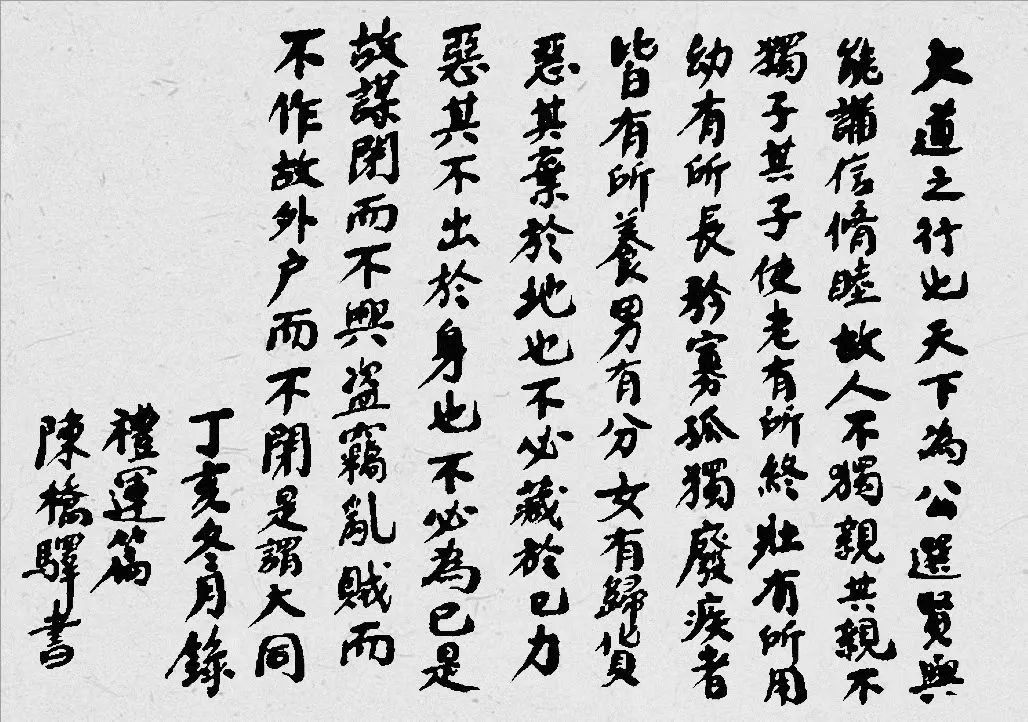 大道之行也天下為公選賢與
能講信脩睦故人不獨親其親不
獨子其子使老有所終壯有所用
幼有所長矜寡孤獨廢疾者
皆有所養男有分女有歸貨
惡其棄於地也不必藏於己力
惡其不出於身也不必為己是
故謀閉而不興盜竊亂賊而
不作故外户而不閉是謂大同
丁亥冬月錄
禮運篇
陳橋驛書